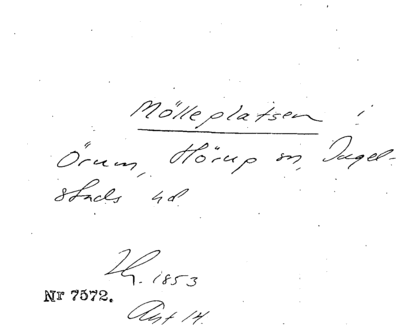 Mölleplatsen i
Örum, Hörup sn, Ingel-
stads hd
1853
Nr 7572.
Akt 14.